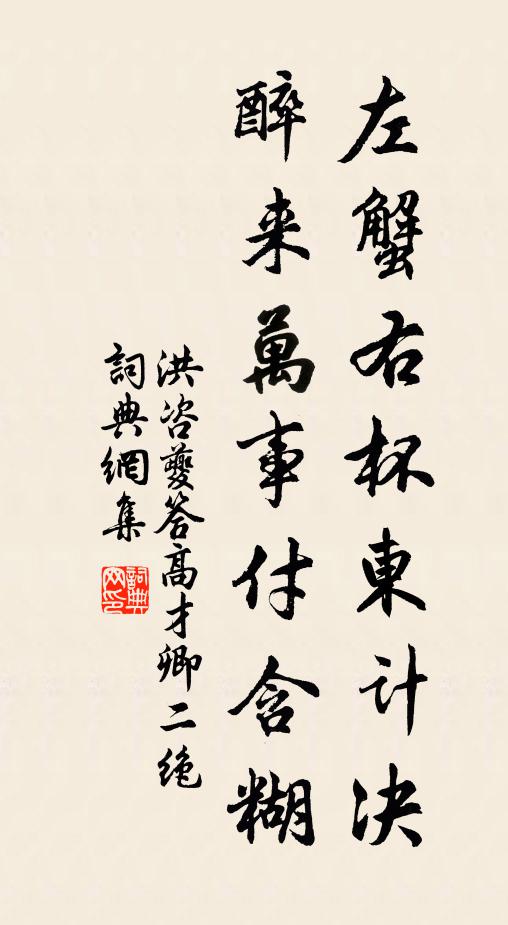 左蟹右杯東計决
醉来萬事付含糊
洪咨夔答高才卿二绝
詞典網集
詞典網印